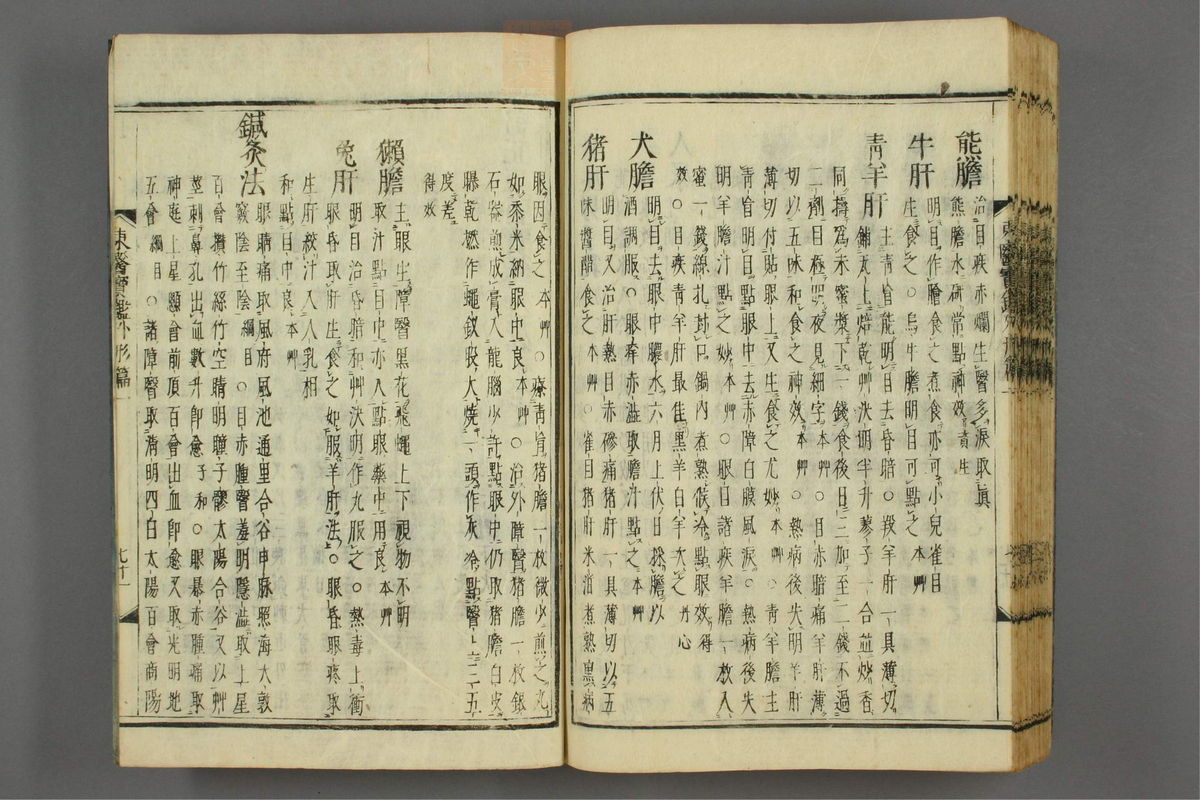 熊膽
治目疾赤爛生瞖多淚取眞
熊膽水研常點神效 資生
牛肝
明目作膾食之煮食亦可小兒雀目
生食之○烏牛膽明目可點之 本艸
青羊肝
主青盲能明目去昏暗○羖羊肝一具薄切
鋪瓦上焙乾艸決明半升蓼子一合並炒香
同擣爲末蜜漿下一錢食後日三加至二錢不過
二劑目極明夜見細字 本艸 ○目赤暗痛羊肝薄
切以五味和食之神效 本艸 ○熱病後失明羊肝
薄切付貼眼上又生食之尤妙 本艸 ○青羊膽主
青盲明目點眼中去赤障白膜風淚○熱病後失
明羊膽汁點之妙 本艸 ○眼目諸疾羊膽一枚入
蜜一錢線扎封口鍋內煮熟候冷點眼效 得
效 ○目疾青羊肝最佳黑羊白羊次之 丹心
犬膽
明目去眼中膿水六月上伏日採膽以
酒調服○眼痒赤澁取膽汁點之 本艸
猪肝
明目又治肝熱目赤磣痛猪肝一具薄切以五
味醬醋食之 本艸 ○雀目猪肝米泔煮熟熏病
眼因食之 本艸 ○療青盲猪膽一枚微火煎之丸
如黍米納眼中良 本艸 ○治外障瞖猪膽一枚銀
石器煎成膏入龍腦少許點眼中仍取猪膽白皮
曝乾撚作繩釵股大燒一頭作灰冷點瞖上三五
度差
得效
獺膽
主眼生障瞖黑花飛蠅上下視物不明
取汁點目中亦入點眼藥中用良 本艸
兔肝
明目治昏暗和艸決明作丸服之○熱毒上衝
眼昏取肝生食之如服羊肝法○眼昏眼疼取
生肝絞汁入人乳相
和點目中良 本艸
鍼灸法
眼睛痛取風府風池通里合谷申脉照海大敦
竅陰至陰 綱目 ○目赤腫瞖羞明隱澁取上星
百會攢竹絲竹空睛明瞳子髎太陽合谷又以艸
莖刺鼻孔出血數升卽愈 子和 ○眼暴赤腫痛取
神庭上星顖會前頂百會出血卽愈又取光明地
五會 綱目 ○諸障瞖取睛明四白太陽百會商陽
東醫寶鑑外形篇一
七十一